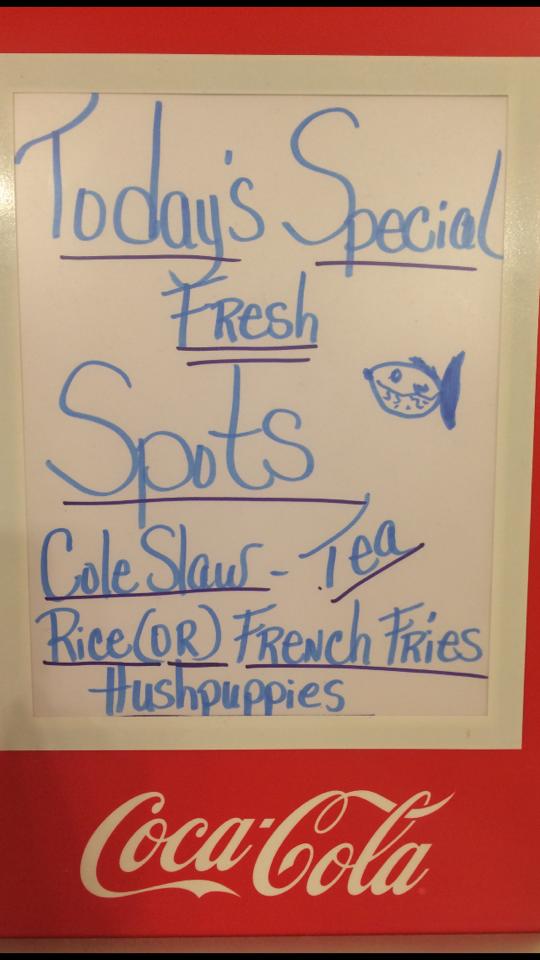 Today's Special
Fresh
Spots
Cole Slaw - Tea
Rice (OR) FRENCH FRies
Hushpuppies
Coca-Cola